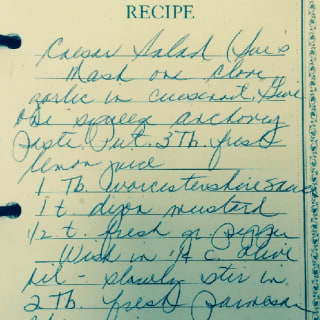 RECIPE
Caesar Salad
Mash one clove
garlic in cuisenart, Give
one squeeze anchovy
Paste. Put 3 Tb. fresh
lemon juice
1 Tb. worcestershire sauce
1 t. dijon mustard
1/2 t. fresh gr pepper
Wisk in 1/4 c. olive
oil - slowly stir in
2 Tb. fresh Parmesan